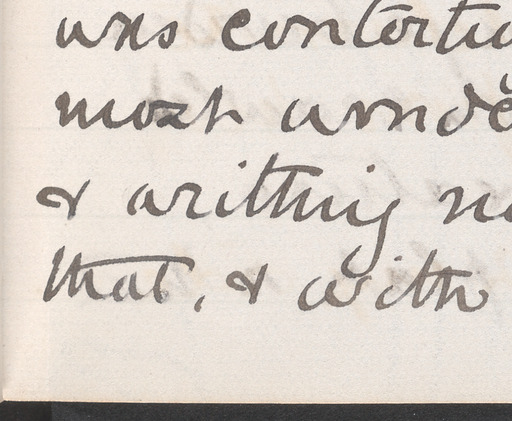 was contortu
most wonde
& writhing n
that, & with